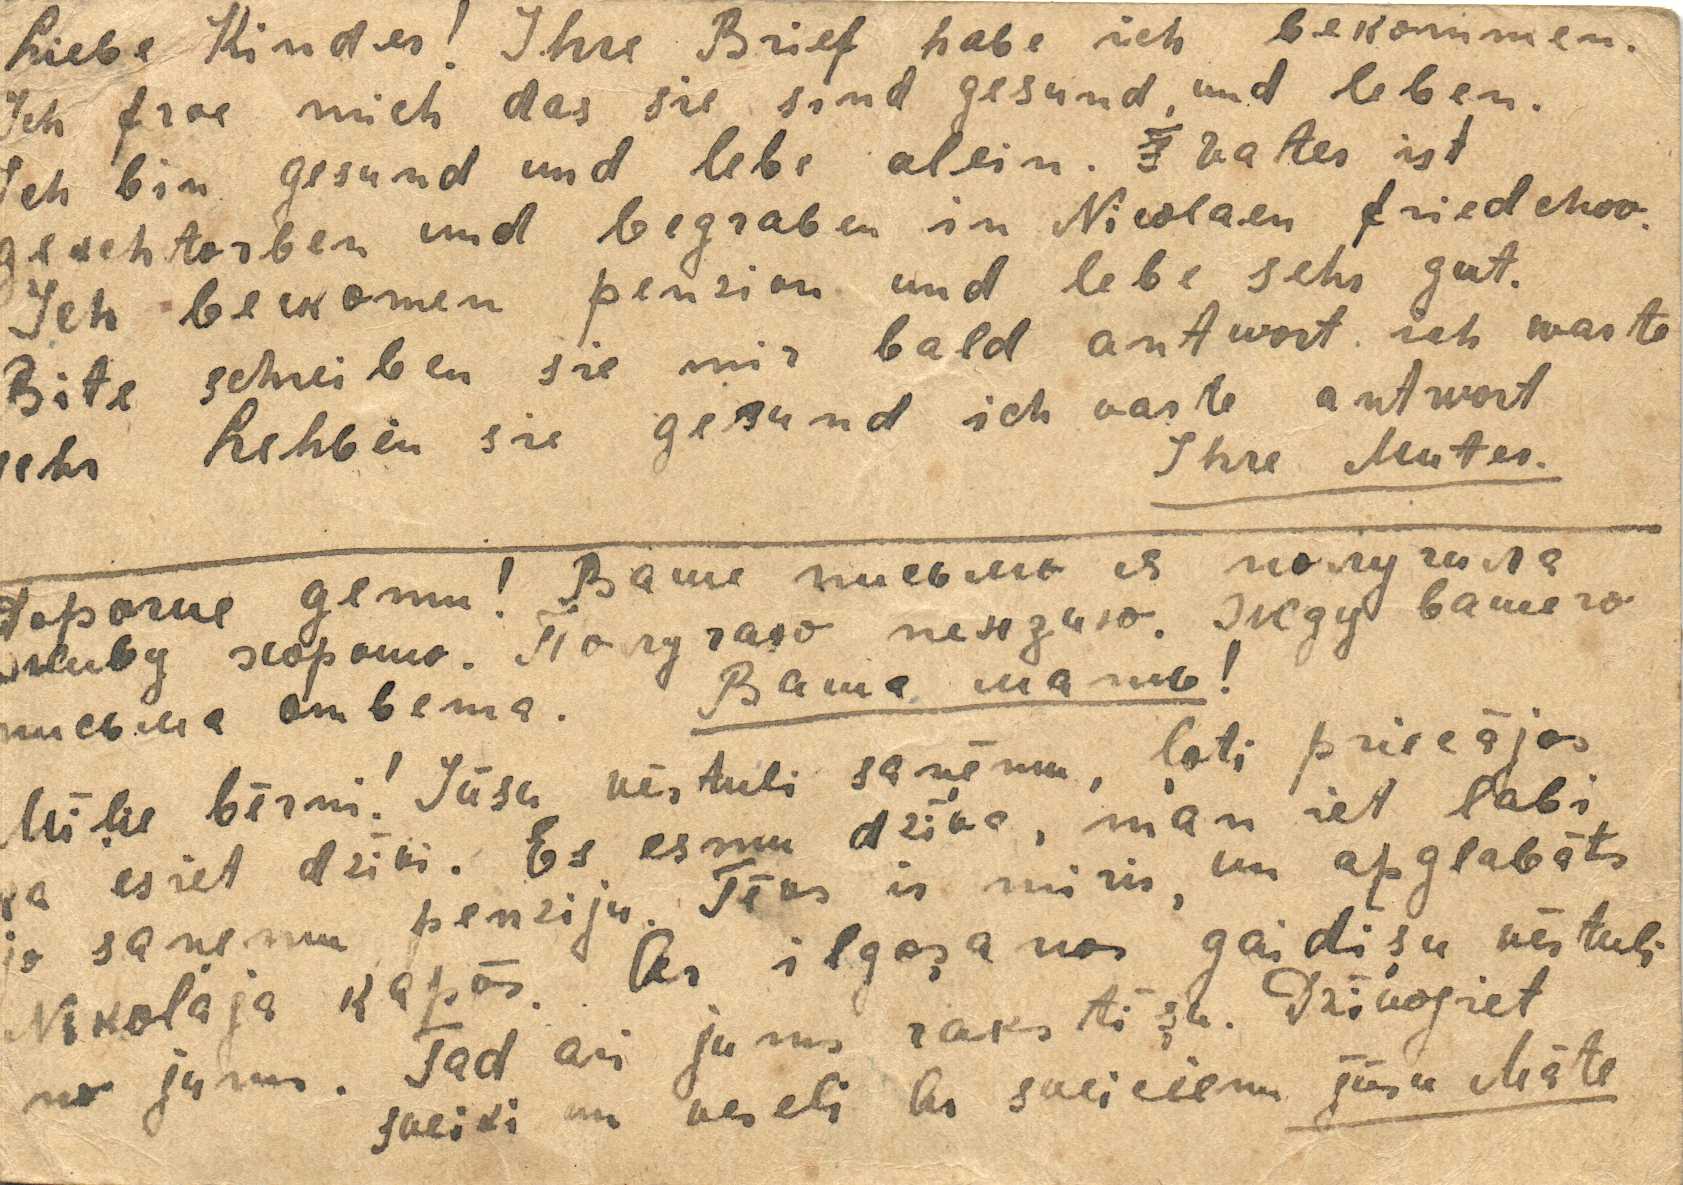 Liebe Kinder! Ihre Brief habe ich bekommen.
Ich froe mich das sie sind gesund, und leben.
Ich bin gesund und lebe alein. Vater ist
geschtorben und begraben in Nicolaen friedchoo.
Ich bekomen penzion und lebe sehr gut.
Bite schreiben sie mir bald antwort. ich warte
sehr Lehben sie gesund ich varte antwort
Ihre Muter.
Дорогие дети! Ваше письмо я получила
живу хорошо. Получаю пензию. Жду вашего
письма ответа. Ваша мать!
Mīļie bērni! Jūsu vēstuli saņēmu, ļoti priecājos
ka esiet dzīvi. Es esmu dzīva, man iet labi
jo saņemu penziju. Tēvs ir miris, un apglabāts
Nikolaja kapos. Ar ilgošanos gaidīšu vēstuli
no jums. Tad ari jums rakstīšu. Dzīvojiet
sveiki un veseli Ar sveicienu jūsu Māte